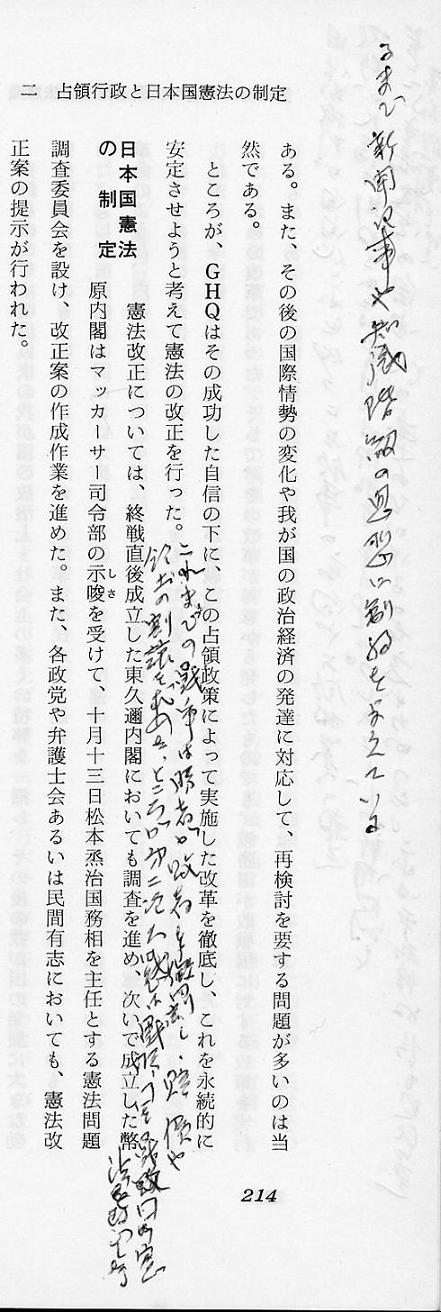 るまで新聞記事や知識階級の思想に制約を与えている
二 占領行政と日本国憲法の制定
ある。また、その後の国際情勢の変化や我が国の政治経済の発達に対応して、再検討を要する問題が多いのは当
然である。
ところが、GHQはその成功した自信の下に、この占領政策によって実施した改革を徹底し、これを永続的に
安定させようと考えて憲法の改正を行った。
これまでの戦争は勝者が敗者を
領土の割譲を求めた。ところが第二次大戦は戦勝国は戦敗国の
日本国憲法
の制定
憲法改正については、終戦直後成立した東久邇内閣においても調査を進め、次いで成立した幣
原内閣はマッカーサー司令部の示唆を受けて、十月十三日松本烝治国務相を主任とする憲法問題
しさ
調査委員会を設け、改正案の作成作業を進めた。また、各政党や弁護士会あるいは民間有志においても、憲法改
正案の提示が行われた。
214